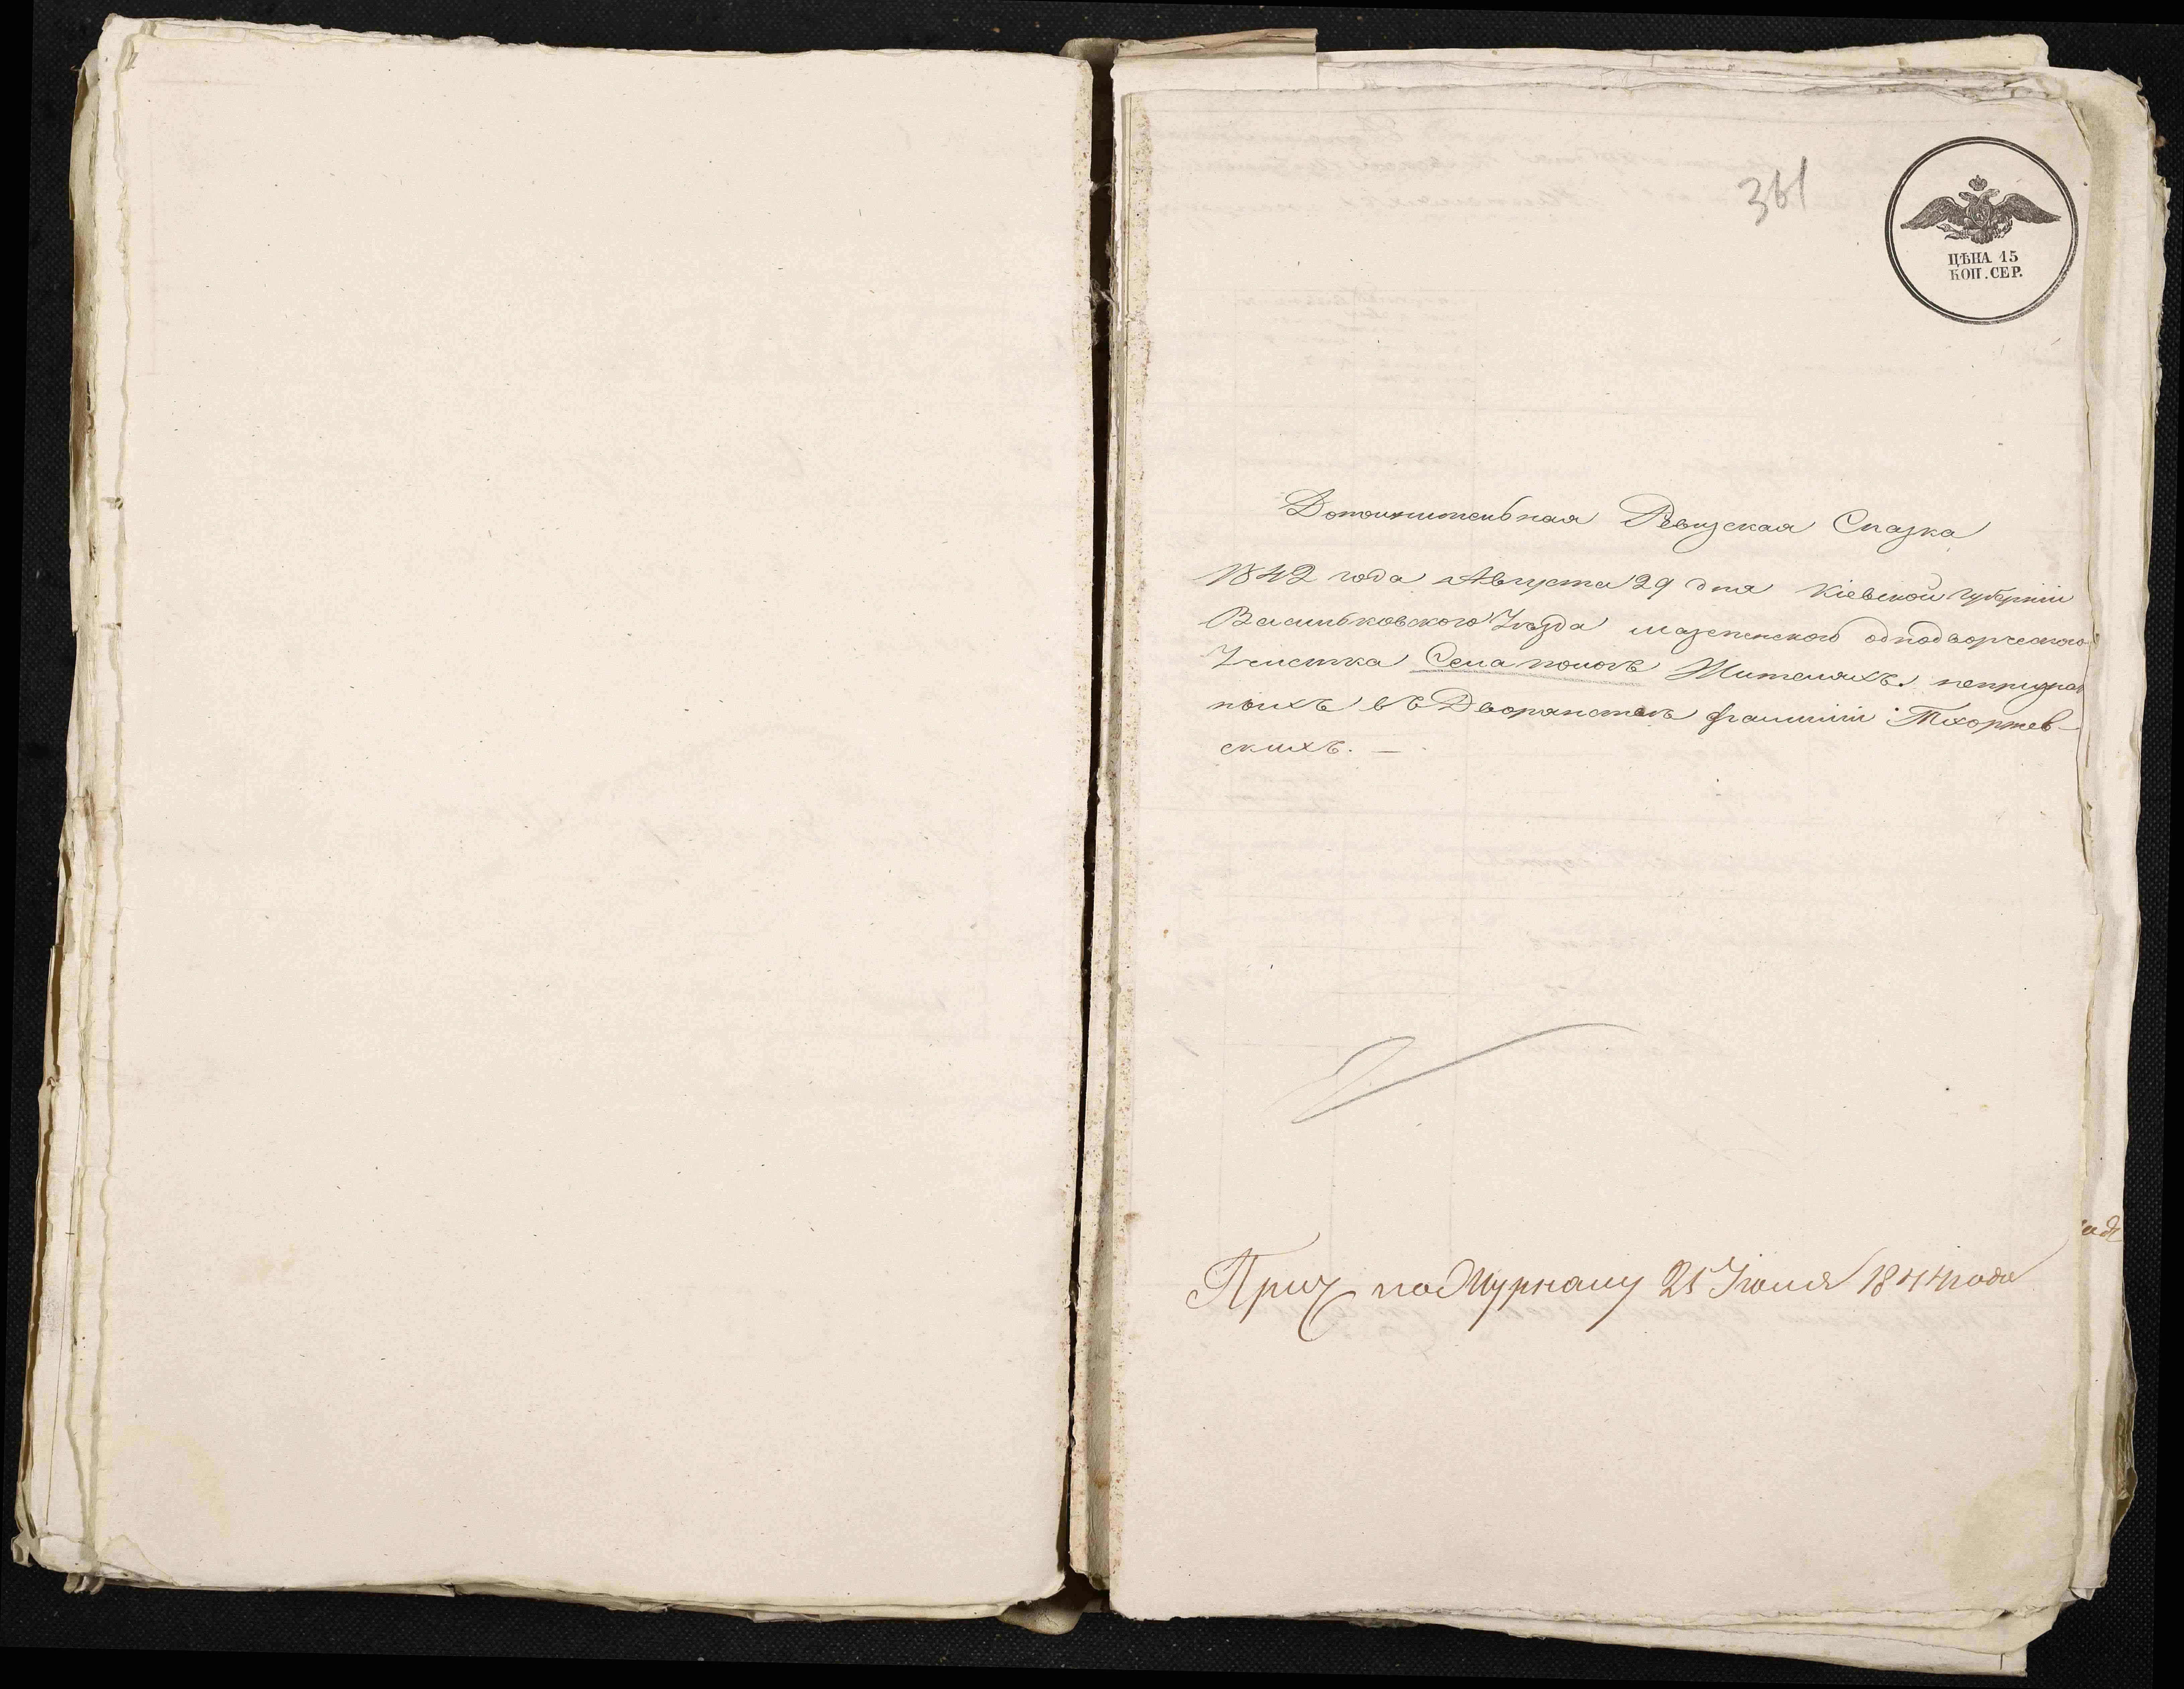 361
ЦѢНА 15
КОП. СЕР.
Дополнительная Ревизская Сказка
1842 года Августа 29 дня Кіевской губерніи
Васильковского Уѣзда мазепенского однодворческого
Участка Села пологъ Жителяхъ непризнан
ныхъ въ Дворянствѣ фамиліи Тхоржев-
скихъ. —
по Журналу 21 Іюля 1844 года